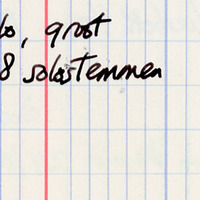 lo, groot
8 solostemmen